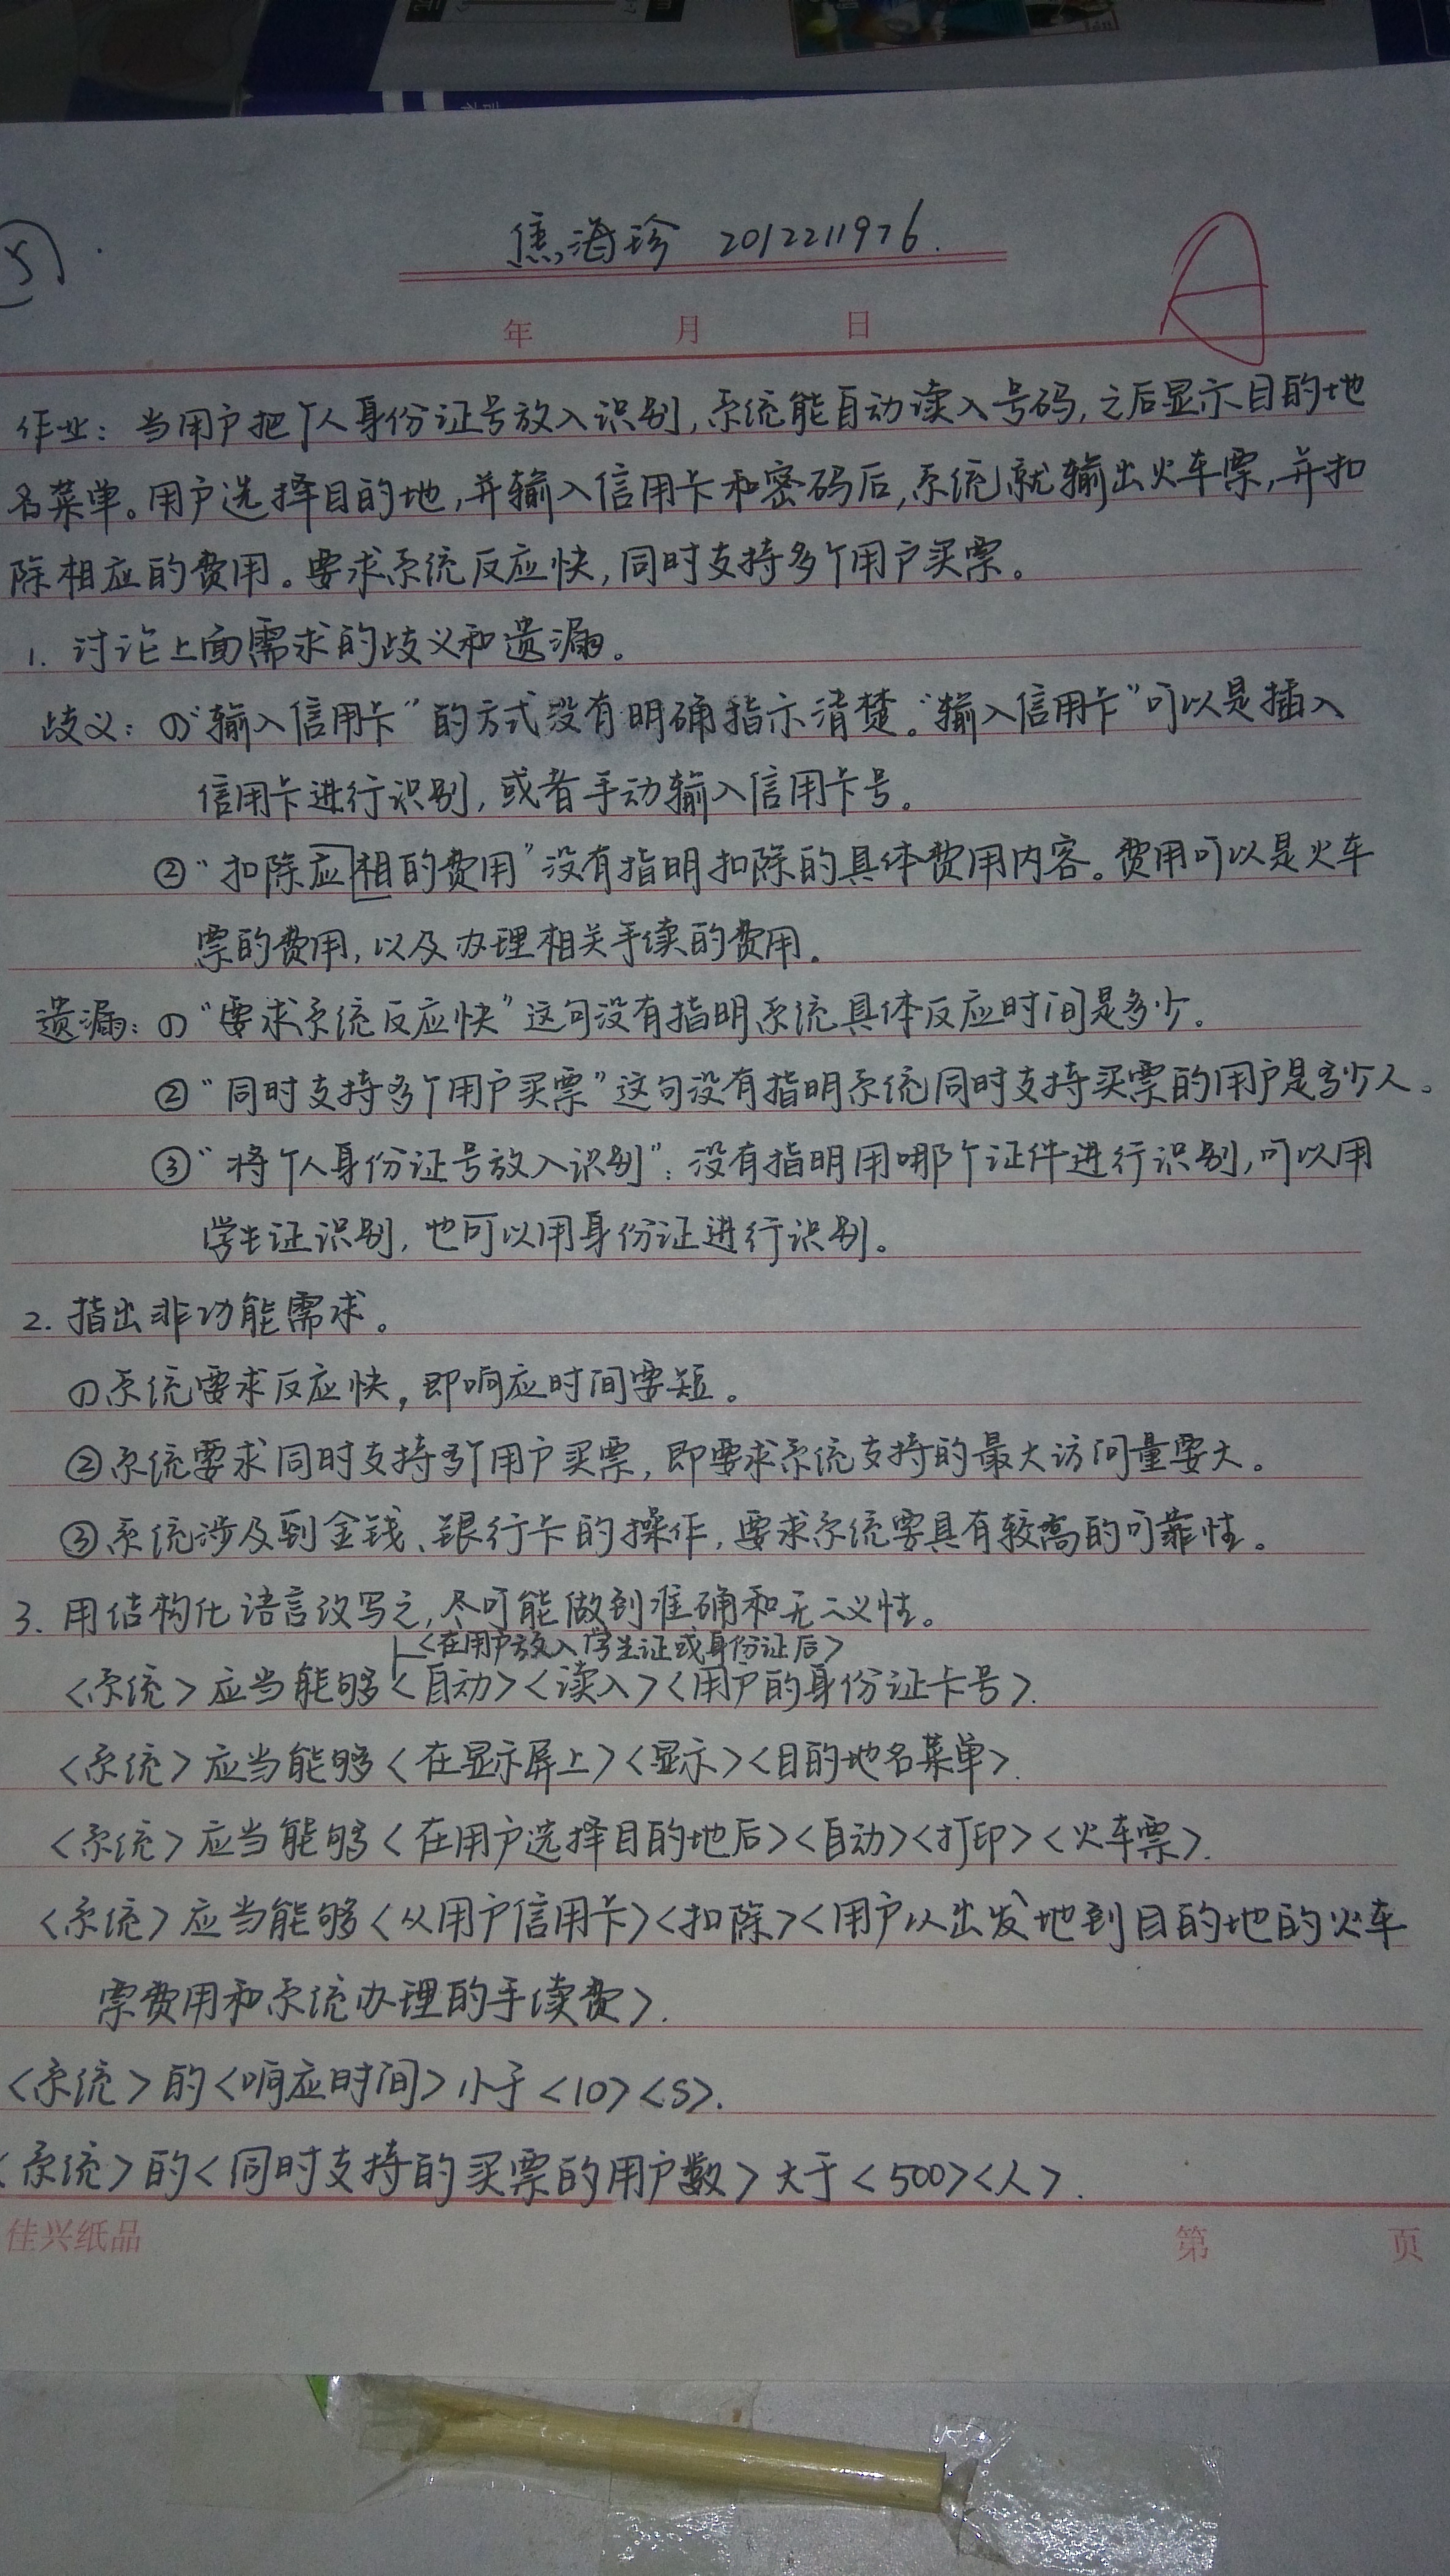 焦海珍 2012211976.
A
年 月 日
作业：当用户把个人身份证号放入识别，系统能自动读入号码，之后显示目的地
名菜单。用户选择目的地，并输入信用卡和密码后，系统就输出火车票，并扣
除相应的费用。要求系统反应快，同时支持多个用户买票。
1. 讨论上面需求的歧义和遗漏。
歧义：①“输入信用卡”的方式没有明确指示清楚。“输入信用卡”可以是插入
信用卡进行识别，或者手动输入信用卡号。
②“扣除应相的费用”没有指明扣除的具体费用内容。费用可以是火车
票的费用，以及办理相关手续的费用。
遗漏：①“要求系统反应快”这句没有指明系统具体反应时间是多少。
②“同时支持多个用户买票”这句没有指明系统同时支持买票的用户是多少人。
③“将个人身份证号放入识别”：没有指明用哪个证件进行识别，可以用
学生证识别，也可以用身份证进行识别。
2. 指出非功能需求。
①系统要求反应快，即响应时间要短。
②系统要求同时支持多个用户买票，即要求系统支持的最大访问量要大。
③系统涉及到金钱、银行卡的操作，要求系统要具有较高的可靠性。
3. 用结构化语言改写之，尽可能做到准确和无二义性。
<在用户放入学生证或身份证后>
<系统>应当能够<自动><读入><用户的身份证卡号>.
<系统>应当能够<在显示屏上><显示><目的地名菜单>.
<系统>应当能够<在用户选择目的地后><自动><打印><火车票>.
<系统>应当能够<从用户信用卡><扣除><用户以出发地到目的地的火车
票费用和系统办理的手续费>.
<系统>的<响应时间>小于<10><S>.
<系统>的<同时支持的买票的用户数>大于<500><人>.
佳兴纸品 第 页